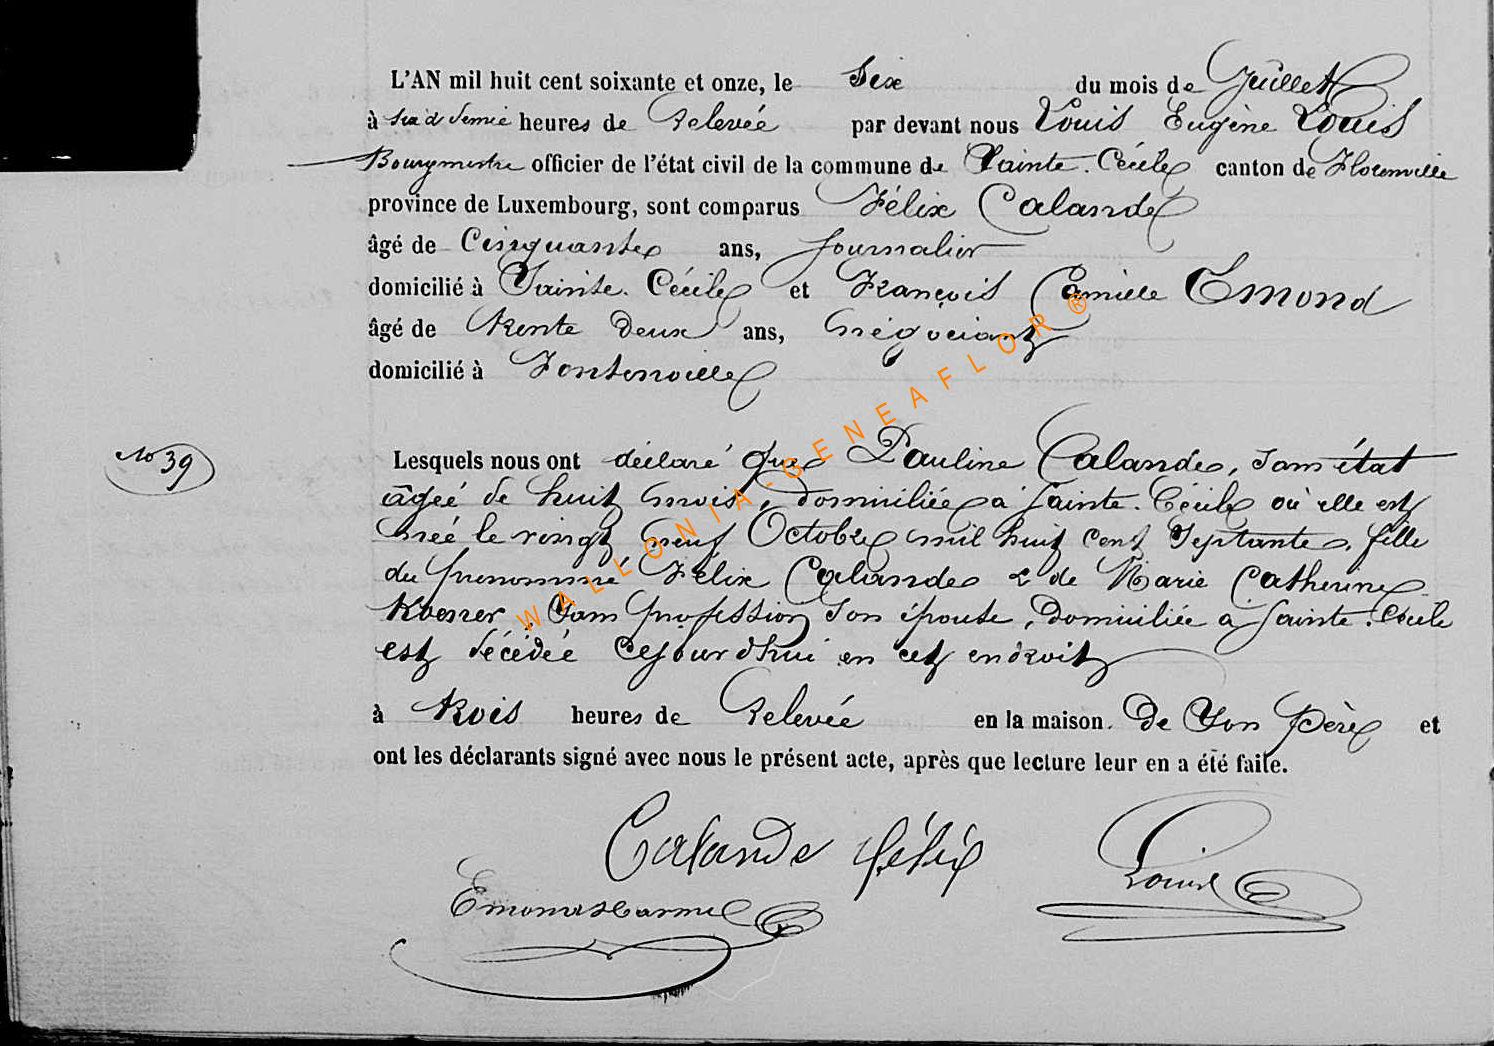 L'AN mil huit cent soixante et onze, le Six du mois de Juillet
à six & demie heures de Relevée par devant nous Louis Eugène Louis
Bourgmestre officier de l'état civil de la commune de Sainte-Cécile canton de Florenville
province de Luxembourg, sont comparus Félix Calande
âgé de Cinquante ans, journalier
domicilié à Sainte-Cécile et François Camille Emond
âgé de trente deux ans, négociant
domicilié à Fontenoille
No 39
Lesquels nous ont déclaré que Pauline Calande, sans état
âgée de huit mois, domiciliée à Sainte-Cécile où elle est
née le vingt neuf Octobre mil huit cent Septante, fille
du prénommé Félix Calande & de Marie Catherine
sans profession son épouse, domiciliée à Sainte-Cécile
est décédée cejourd'hui en cet endroit
à trois heures de Relevée en la maison de son père et
ont les déclarants signé avec nous le présent acte, après que lecture leur en a été faite.
Calande félix
Louis
Emond
WALLONIA-GENEAFLOR®